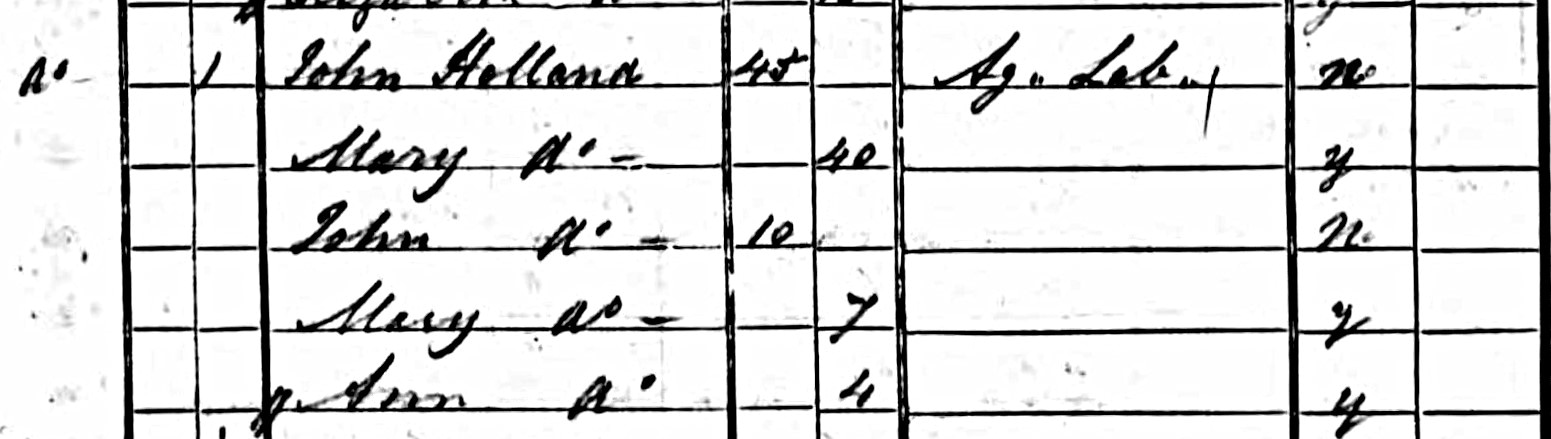 do 1 John Holland 45 Ag. Lab. n
Mary do - 40 y
John do - 10 n
Mary do - 7 y
Ann do 4 y